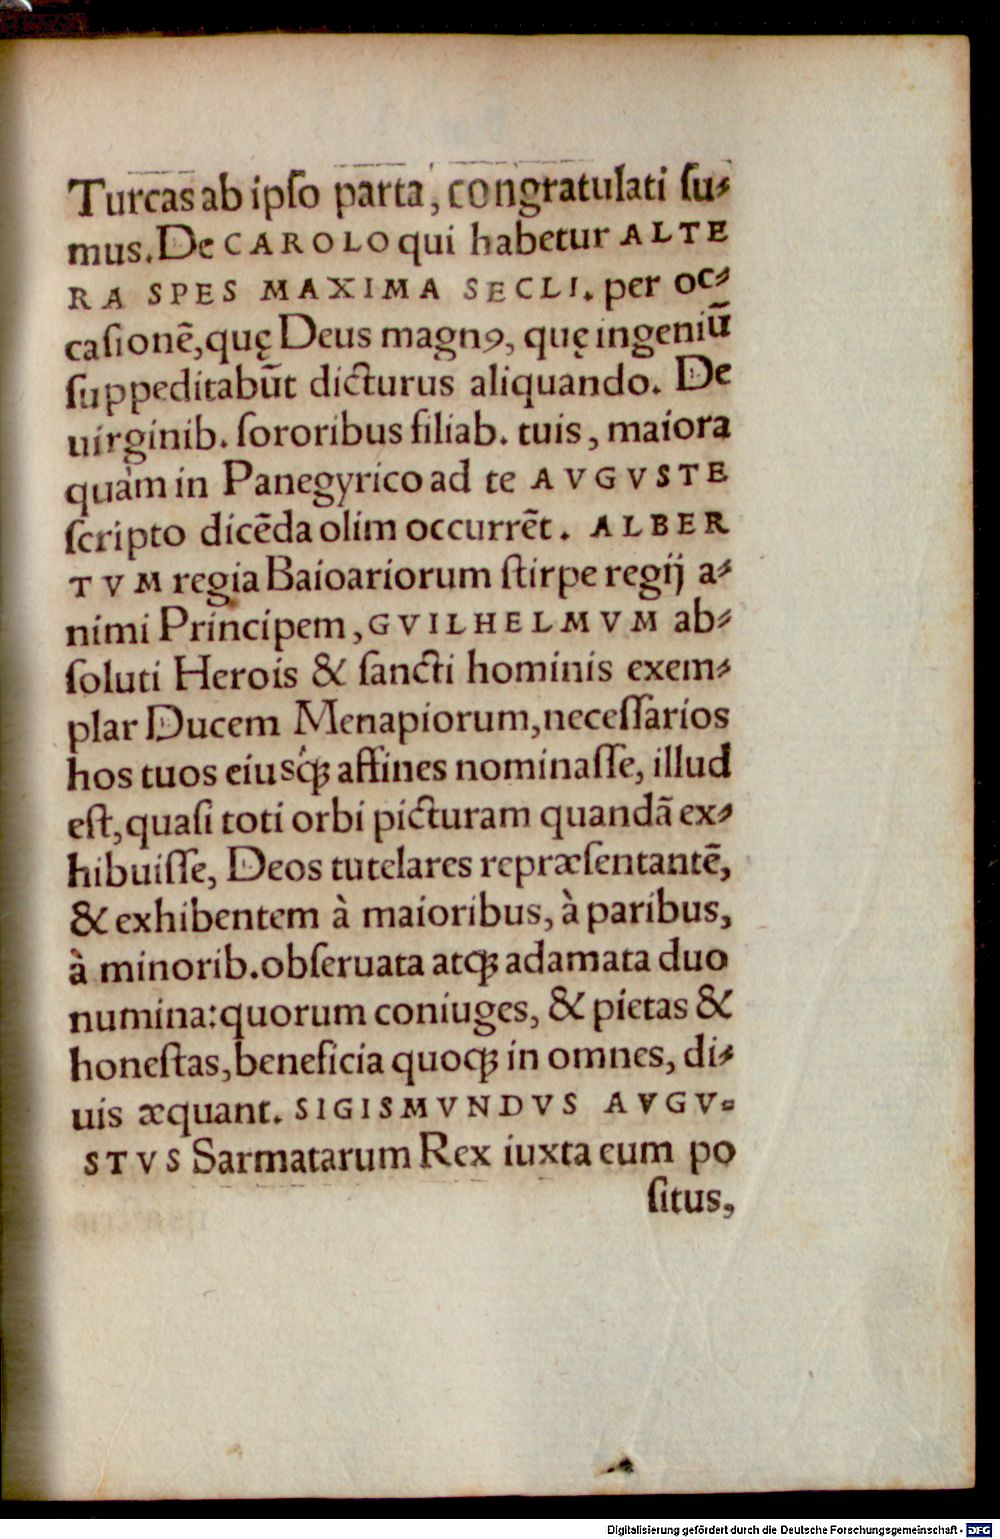 Turcas ab ipso parta, congratulati ſu⸗
mus. De CAROLO qui habetur ALTE
RA SPES MAXIMA SECLI. per oc⸗
caſionẽ, quę Deus magnꝰ, quę ingeniũ
ſuppeditabũt dicturus aliquando. De
uirginib. ſororibus filiab. tuis, maiora
quàm in Panegyrico ad te AVGVSTE
ſcripto dicẽda olim occurrẽt. ALBER
TVM regia Baioariorum ſtirpe regij a⸗
nimi Principem, GVILHELMVM ab⸗
ſoluti Herois & ſancti hominis exem⸗
plar Ducem Menapiorum, neceſſarios
hos tuos eiusq́; affines nominaſſe, illud
eſt, quaſi toti orbi picturam quandã ex⸗
hibuiſſe, Deos tutelares repræſentantẽ,
& exhibentem à maioribus, à paribus,
à minorib. obſeruata atq; adamata duo
numina: quorum coniuges, & pietas &
honeſtas, beneficia quoq; in omnes, di⸗
uis æquant. SIGISMVNDVS AVGV⸗
STVS Sarmatarum Rex iuxta eum po
ſitus,
Digitalisierung gefördert durch die Deutsche Forschungsgemeinschaft - DFG